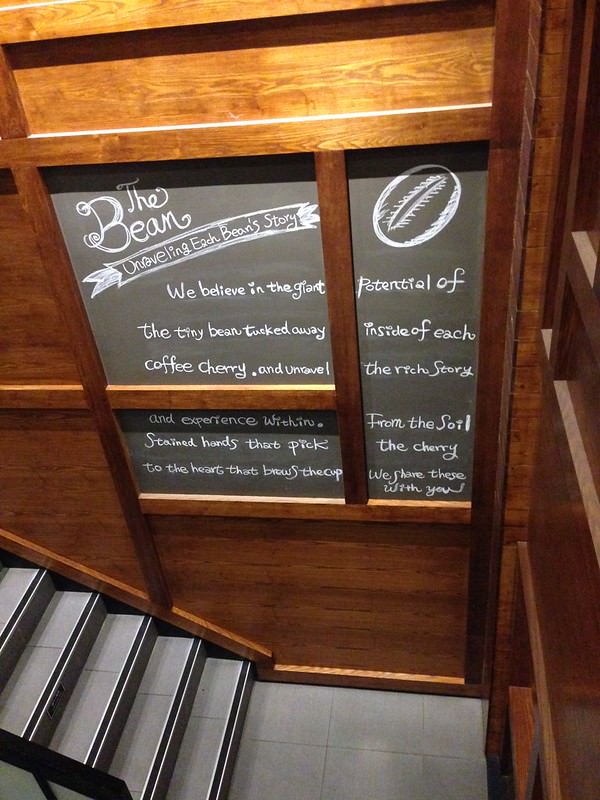 The
Bean
Unraveling Each Bean's Story
We believe in the giant Potential of
the tiny bean tucked away inside of each
coffee cherry . and unravel the rich Story
and experience Within. From the Soil
Stained hands that pick the cherry
to the heart that brews the cup We share these
With you!